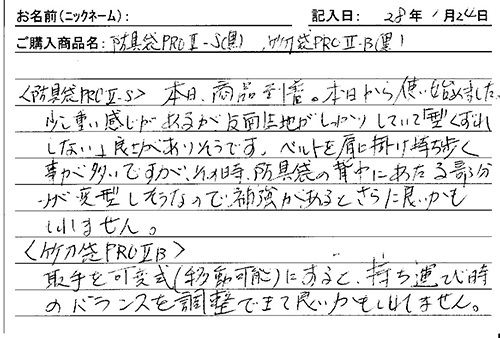 お名前(ニックネーム): 記入日: 28年 1月24日
ご購入商品名: 防具袋PROⅡ-S(黒) , 竹刀袋PROⅡ-B(黒)
<防具袋PROⅡ-S> 本日、商品到着。本日から使い始めました。
少し重い感じがあるが反面生地がしっかりしていて「型くずれ
しない」良さがありそうです。ベルトを肩に掛け持ち歩く
事が多いですが、その時、防具袋の背中にあたる部分
が変型しそうなので、補強があるとさらに良いかも
しれません。
<竹刀袋PROⅡB>
取手を可変式(移動可能)にすると、持ち運び時
のバランスを調整できて良いかもしれません。